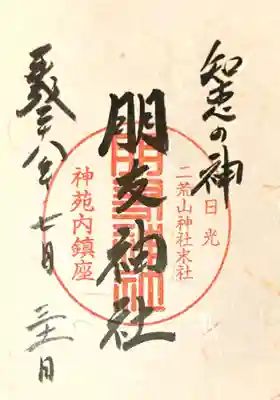 知恵の神
日光
二荒山神社末社
朋友神社
神苑内鎮座
平成二十八年七月三十一日